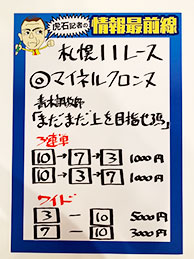 虎石記者の
情報最前線
札幌11レース
◎マイネルクロンヌ
青木調教師
「まだまだ上を目指せる馬」
3連単
10→7→3 1000円
10→3→7 1000円
ワイド
3－10 5000円
7－10 3000円